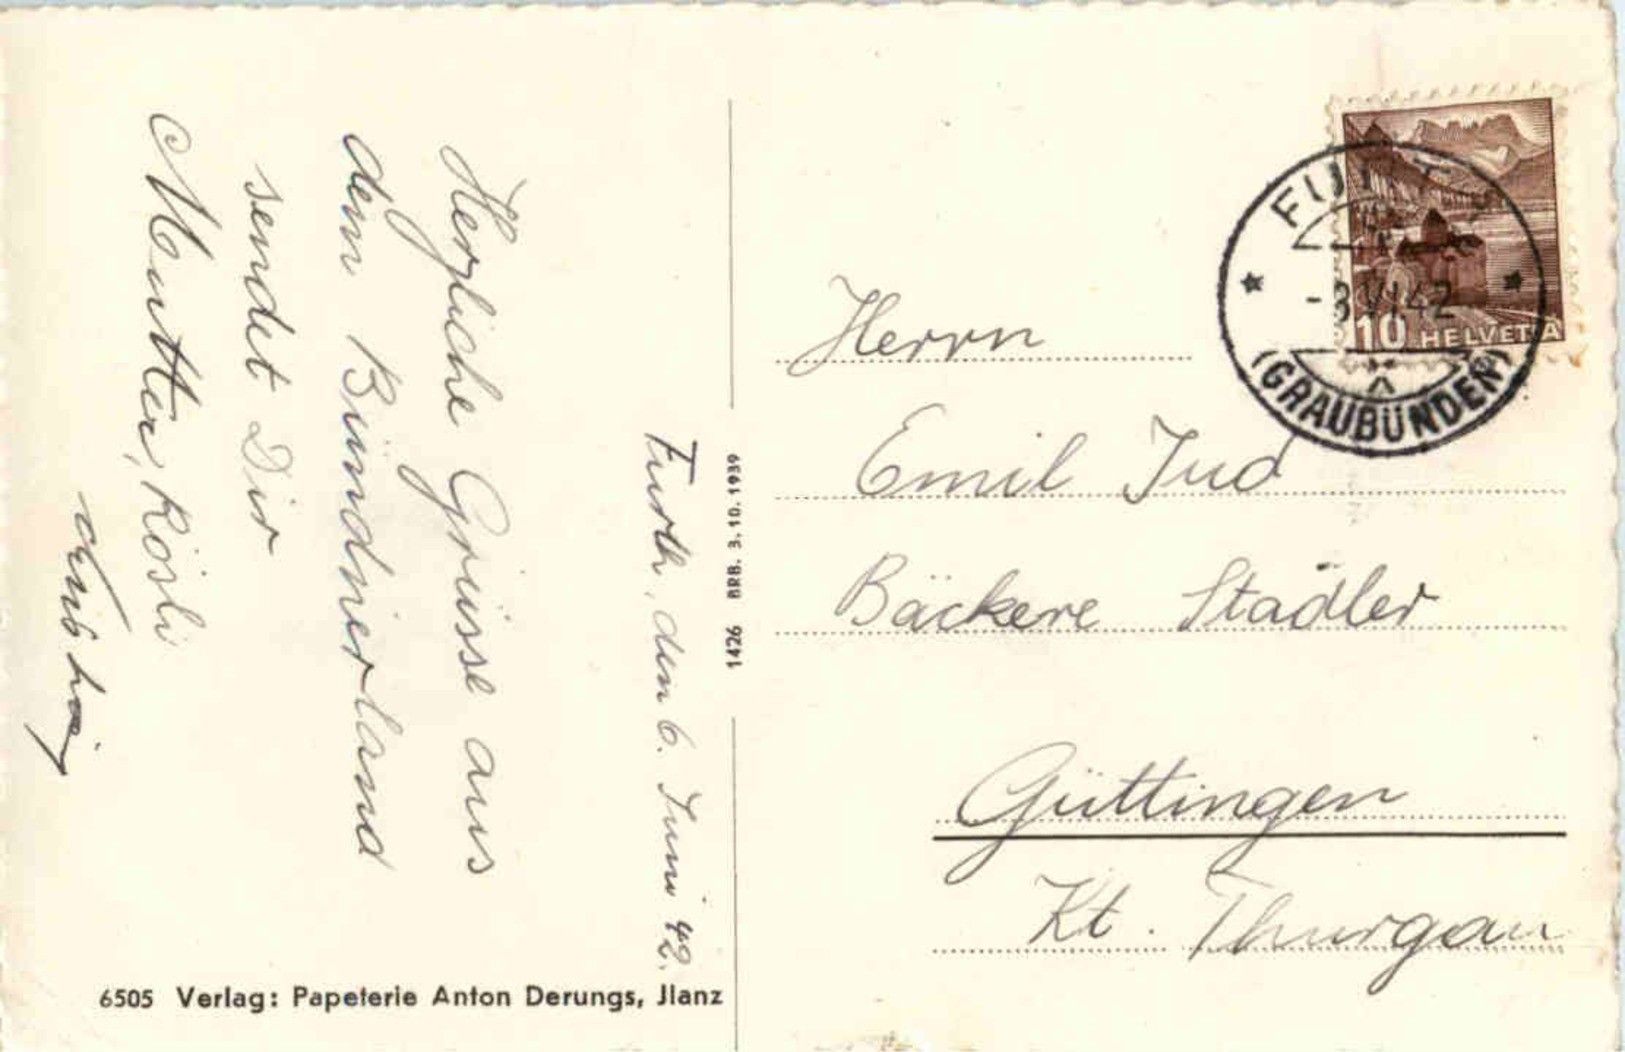 Furth, den 6. Juni 42.
Herzliche Grüsse aus
dem Bündnerland
sendet Dir
Mutter, Rösli
Herrn
Emil Jud
Bäckere Stadler
Güttingen
Kt. Thurgau
10 HELVETIA
(GRAUBÜNDEN)
1426 BRB. 3. 10. 1939
6505 Verlag: Papeterie Anton Derungs, Jlanz